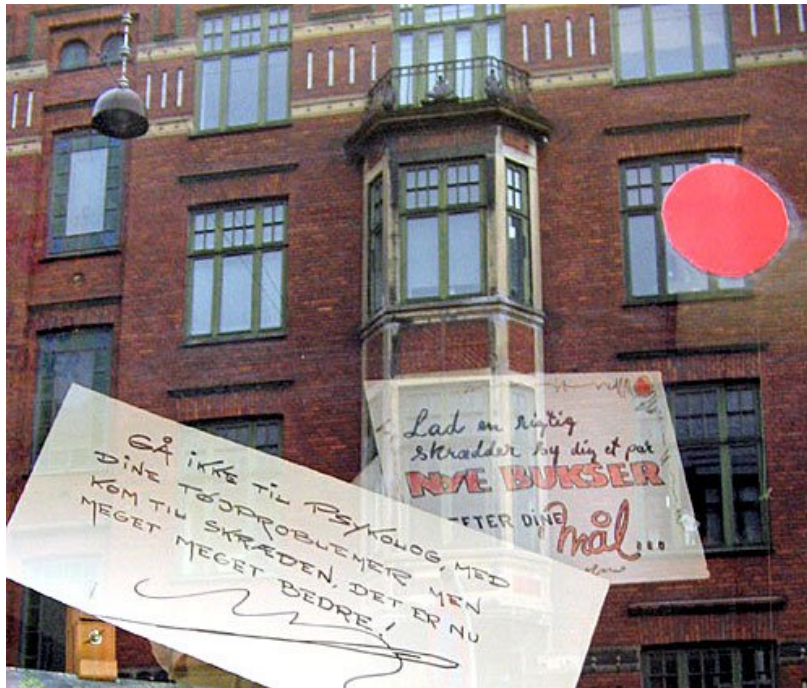 GÅ iKKE TiL PSYKOLOG, MED
DiNE TØJPROBLEMER MEN
KOM TiL SKRÆDEN. DET ER NU
MEGET MEGET BEDRE!
Lad en rigtig
skrædder sy dig et par
NYE BUKSER
EFTER DINE mål...